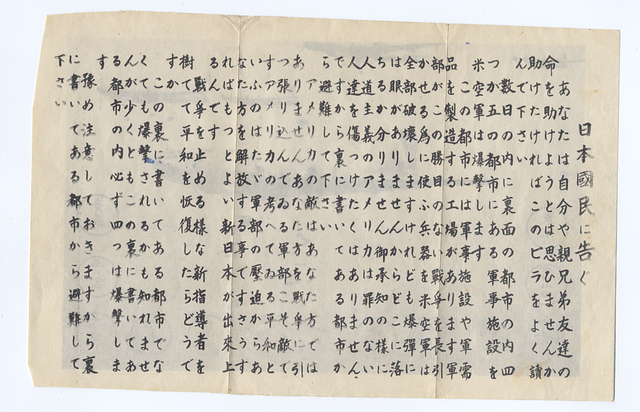 日本國民に告ぐ
あなたは自分や親兄弟友達の
命を助けようとは思ひませんか
助けたければこのビラをよく讀
んで下さい
数日の内に裏面の都市の内四
つか五つの都市にある軍事施設を
米空軍は爆撃します
この都市には軍事施設や軍需
品を製造する工場があります軍
部がこの勝目のない戦争を長引
かせる為に使ふ兵器を米空軍は
全部破壊しますけれども爆彈に
は眼がありませんからどこに落
ちるか分りません御承知の様に
人道主義のアメリカは罪のない
人達を傷つけたくはありません
ですから裏に書いてある都市か
ら避難して下さい
アメリカの敵はあなた方では
ありませんあなた方を戦争に引
っ張り込んでゐる軍部こそ敵で
すアメリカの考へてゐる平和と
いふのはたゞ軍部の壓迫からあ
なた方を解放する事ですさうす
ればもっとよい新日本が出来上
るんです
戦争を止める様な新指導者を
樹てて平和を恢復したらどうで
すか
この裏に書いてある都市でな
くても爆撃されるかも知れませ
んが少くともこの裏に書いてあ
る都市の内必ず四つは爆撃しま
す
豫め注意しておきますから裏
に書いてある都市から避難して
下さい